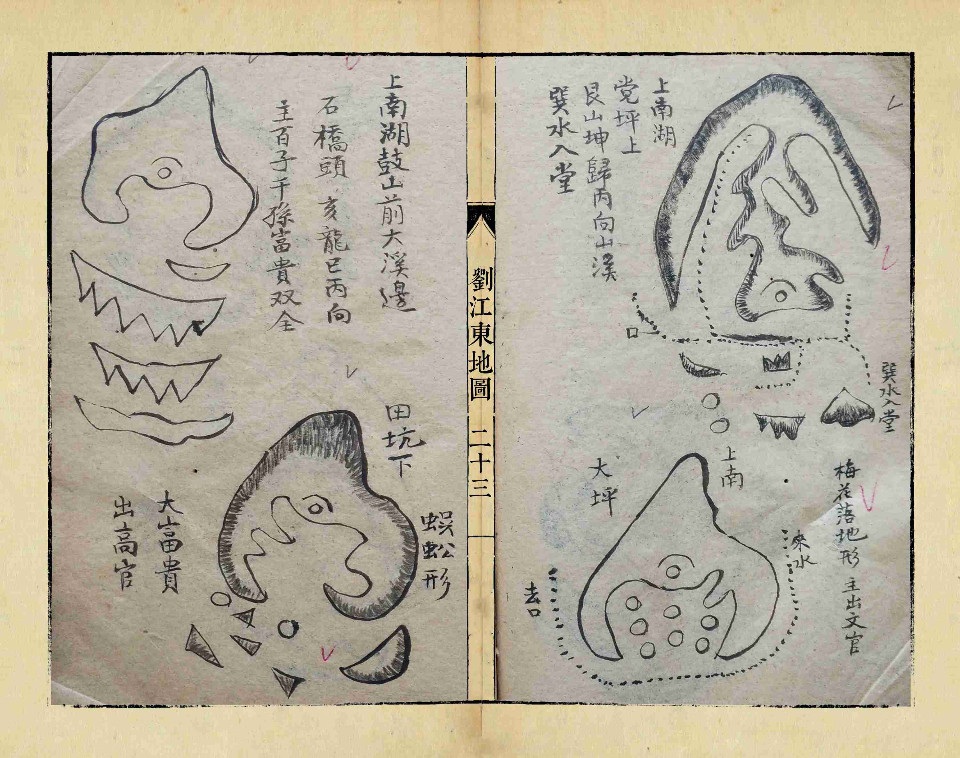 上南湖
党坪上
艮山坤歸丙向山溪
巽水入堂
口
巽水入堂
上南
大坪
梅花落地形 主出文官
來水
去口
劉江東地圖 二十三
上南湖鼓山前大溪邊
石橋頭 亥龍巳丙向
主百子千孫富貴双全
田坑下
蜈蚣形
大富貴
出高官